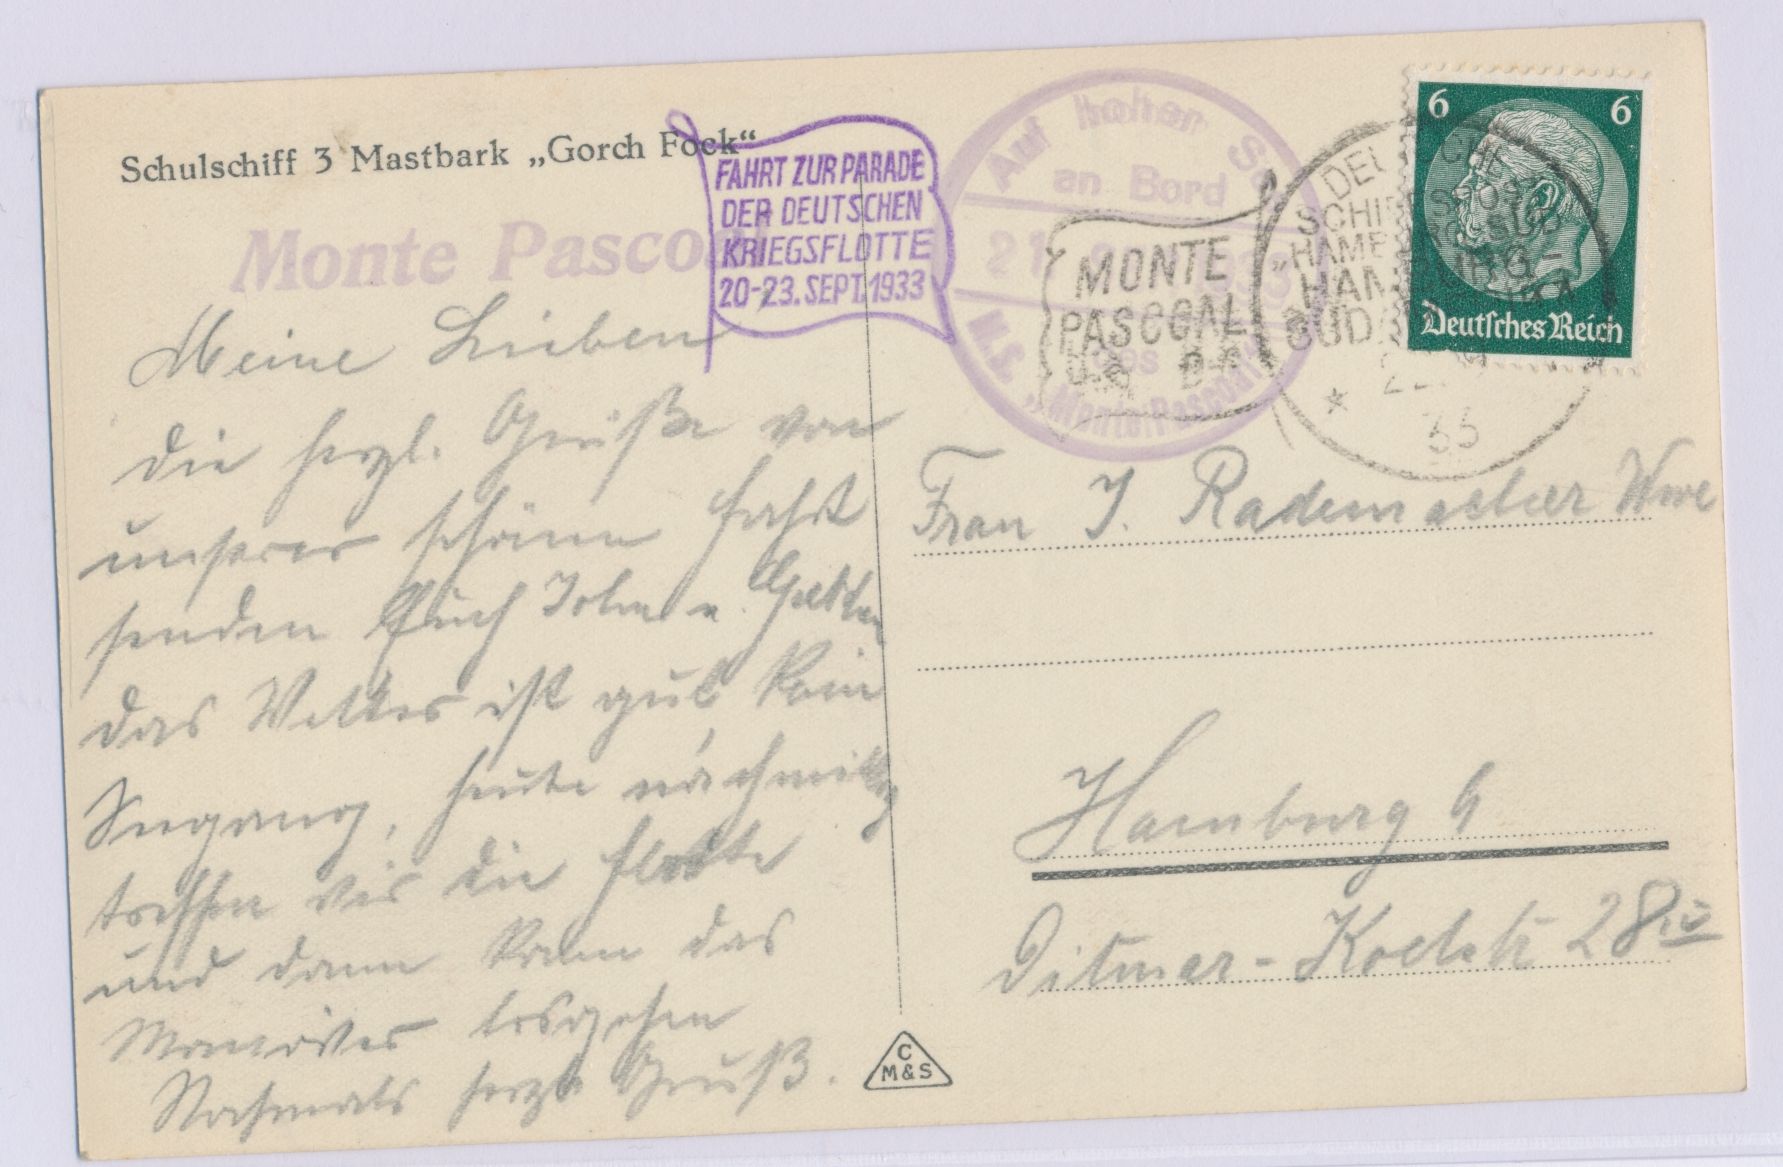 Schulschiff 3 Mastbark „Gorch Fock“
Monte Pascoal
FAHRT ZUR PARADE
DER DEUTSCHEN
KRIEGSFLOTTE
20-23. SEPT. 1933
Auf hoher See
an Bord
des
M.S. „Monte Pascoal“
MONTE
PASCOAL
DEUTSCHE
SCHIFFSPOST
HAMBURG-SÜD
HAMBURG-
SÜDAMERIKA
33
6 6
Deutsches Reich
Meine Lieben
die herzl. Grüße von
unserer schönen Fahrt
senden Euch John u.
das Wetter ist gut kein
Seegang, heute nachmittag
treffen wir die Flotte
und dann kann das
Manöver losgehen
Nochmals herzl. Gruß.
Frau J. Rademacher Wwe
Hamburg 9
Ditmar-Koelstr 28 IV
C
M&S